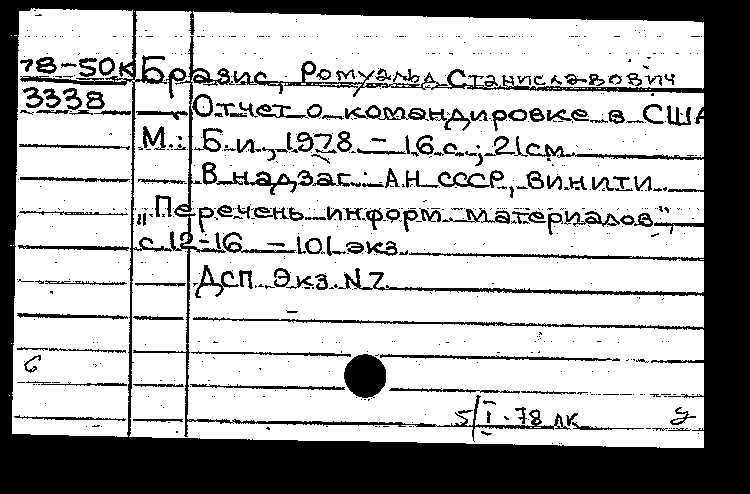 78-50К Бразис, Ромуальд Станиславович
3338 Отчет о командировке в США
М.: Б.и., 1978. - 16 с.; 21 см.
В надзаг.: АН СССР, ВИНИТИ.
„Перечень информ. материалов",
с. 12-16. - 101 экз.
ДСП. Экз. N 7.
6
5/I-78 ЛК